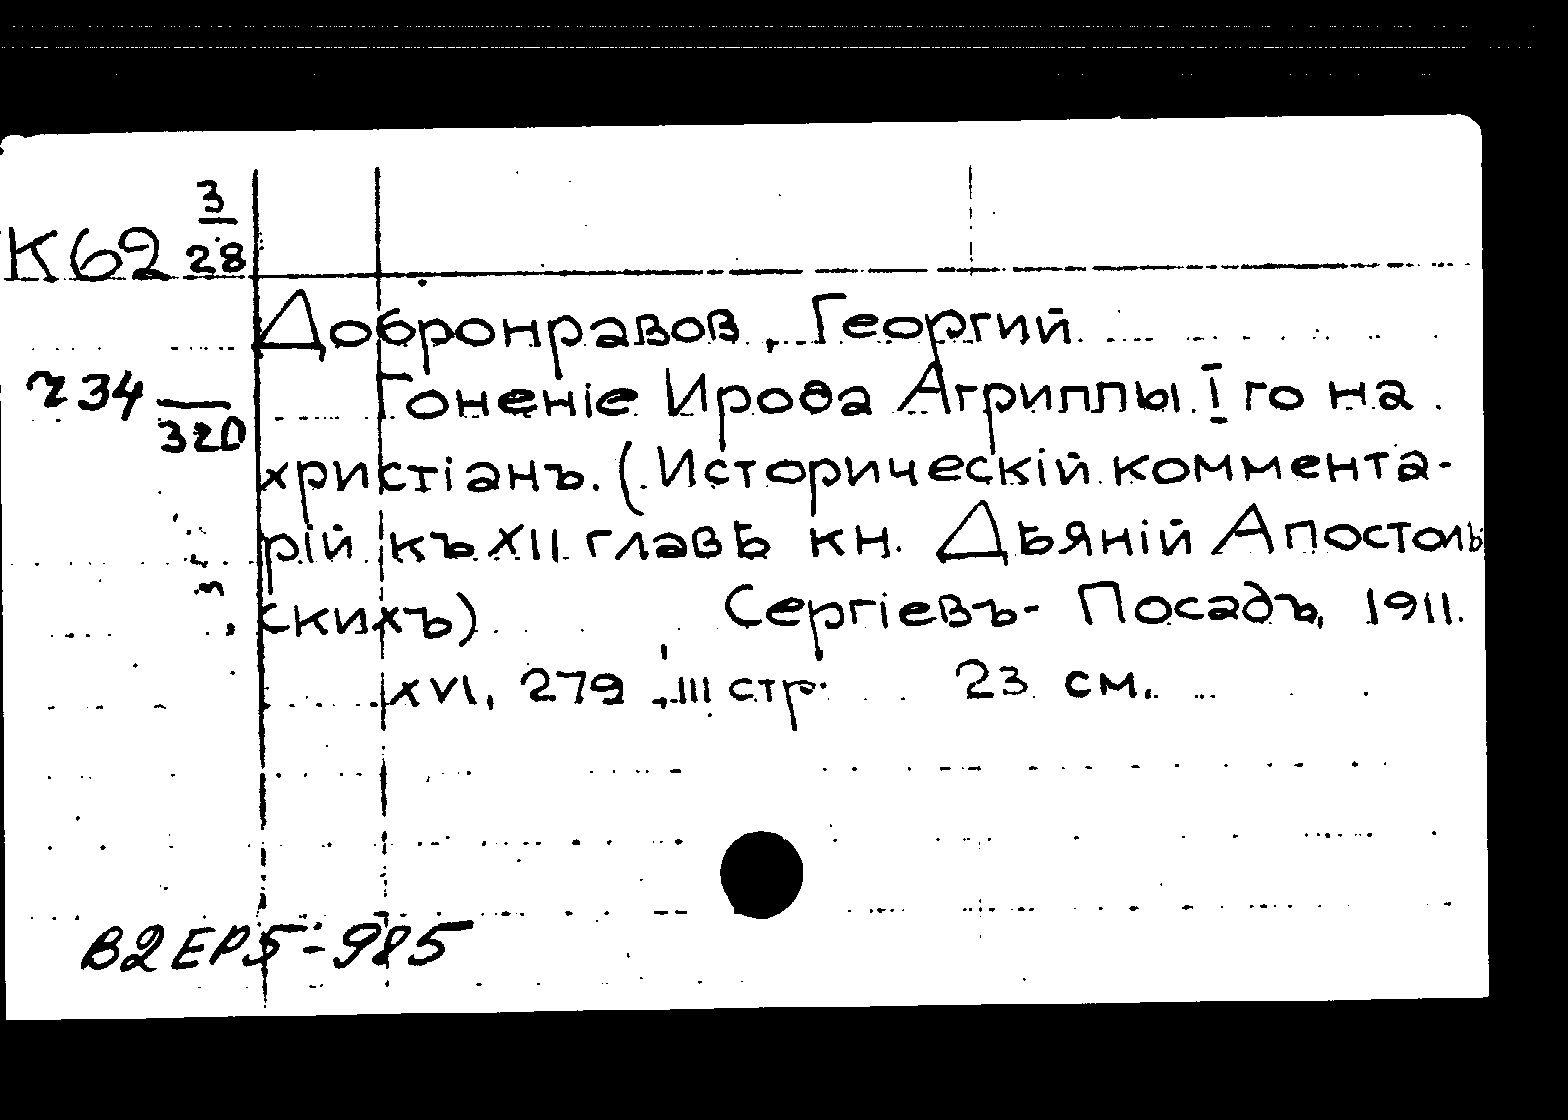 К62 3/28
Добронравов, Георгий
ч34 /320
Гоненіе Ирода Агриппы I го на
христіанъ. (Историческій коммента-
рій къ XII главѣ кн. Дѣяній Апостоль
скихъ) Сергіевъ-Посадъ, 1911.
XVI, 279, III стр. 23 см.
В2ЕР5-985